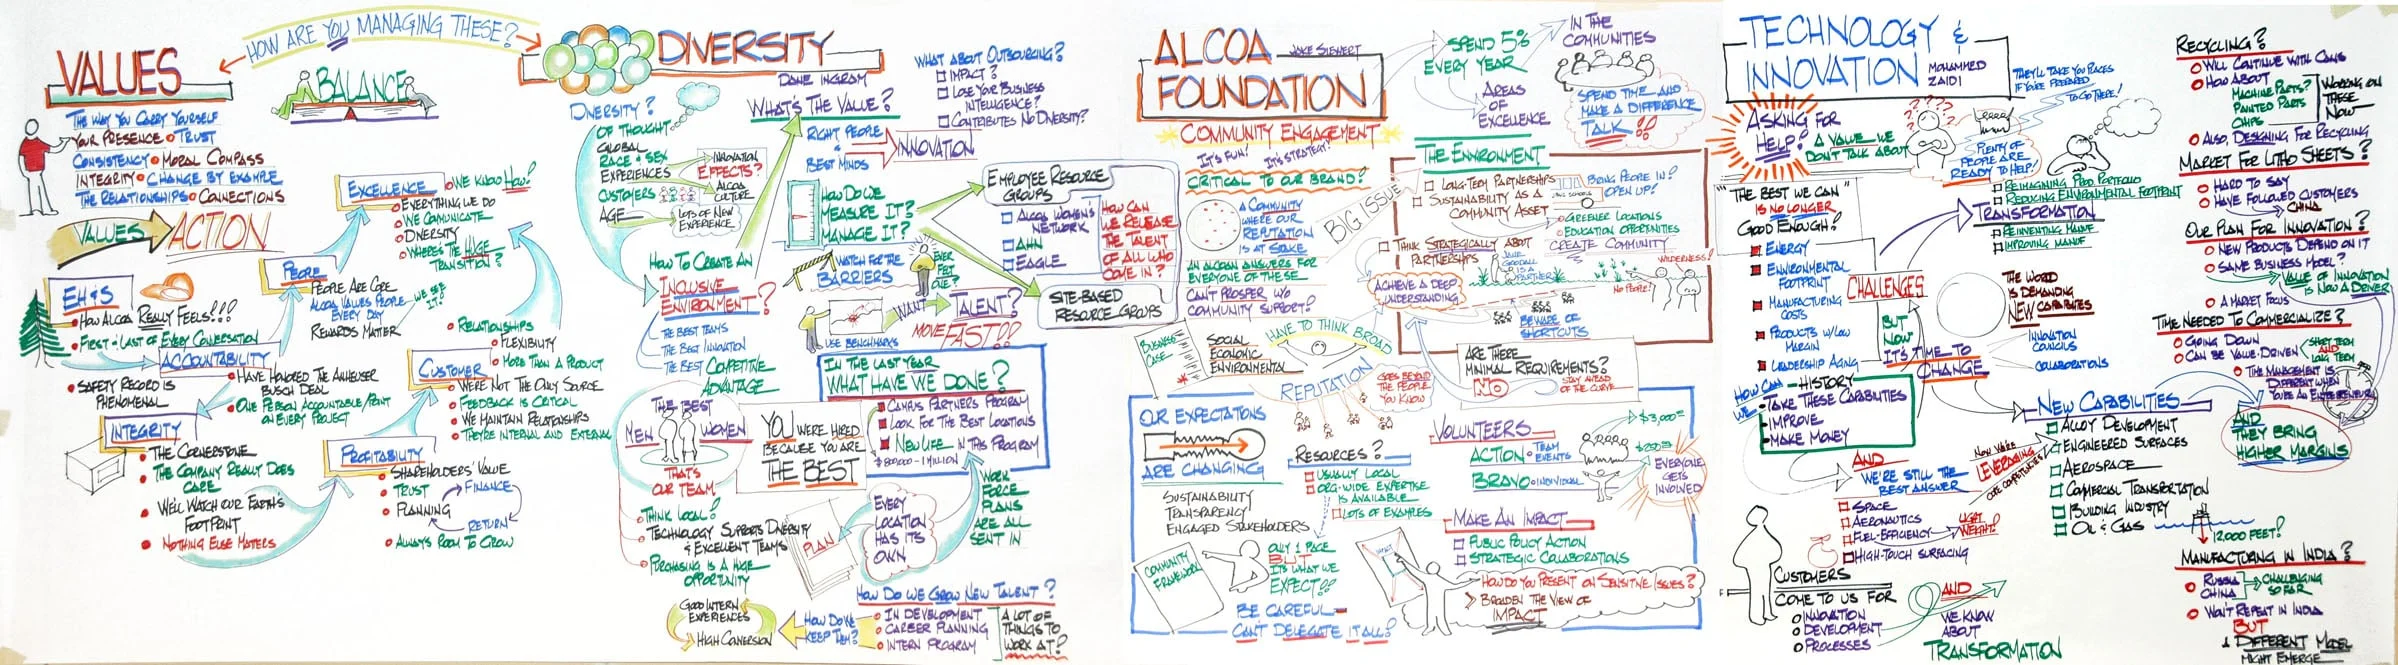 HOW ARE YOU MANAGING THESE?
VALUES
BALANCE
THE WAY YOU CARRY YOURSELF
YOUR PRESENCE • TRUST
CONSISTENCY • MORAL COMPASS
INTEGRITY • CHANGE BY EXAMPLE
THE RELATIONSHIPS • CONNECTIONS
VALUES
ACTION
EH&S
HOW ALCOA REALLY FEELS!!!
FIRST & LAST OF EVERY CONVERSATION
SAFETY RECORD IS
PHENOMENAL
ACCOUNTABILITY
HAVE HONORED THE ANHEUSER
BUSCH DEAL
ONE PERSON ACCOUNTABLE/POINT
ON EVERY PROJECT
INTEGRITY
THE CORNERSTONE
THE COMPANY REALLY DOES
CARE
WE'LL WATCH OUR EARTH'S
FOOTPRINT
NOTHING ELSE MATTERS
PEOPLE
PEOPLE ARE CORE
ALCOA VALUES PEOPLE
EVERY DAY
WE SEE
IT!
REWARDS MATTER
EXCELLENCE
WE KNOW HOW!
EVERYTHING WE DO
WE COMUNICATE
DIVERSITY
WHERE'S THE HUGE
TRANSITION?
CUSTOMER
RELATIONSHIPS
FLEXIBILITY
MORE THAN A PRODUCT
WE'RE NOT THE ONLY SOURCE
FEEDBACK IS CRITICAL
WE MAINTAIN RELATIONSHIPS
THEY'RE INTERNAL AND EXTERNAL
PROFITABILITY
SHAREHOLDERS' VALUE
TRUST
PLANNING
FINANCE
RETURN
ALWAYS ROOM TO GROW
DIVERSITY
DANE INGRAM
DIVERSITY?
OF THOUGHT
GLOBAL
RACE & SEX
EXPERIENCES
CUSTOMERS
AGE
INNOVATION
EFFECTS?
ALCOA
CULTURE
LOTS OF NEW
EXPERIENCE
WHAT'S THE VALUE?
RIGHT PEOPLE
&
BEST MINDS
INNOVATION
WHAT ABOUT OUTSOURCING?
IMPACT?
LOSE YOUR BUSINESS
INTELLIGENCE?
CONTRIBUTES NO DIVERSITY?
HOW DO WE
MEASURE IT?
MANAGE IT?
EMPLOYEE RESOURCE
GROUPS
ALCOA WOMEN'S
NETWORK
AHN
EAGLE
HOW CAN
WE RELEASE
THE TALENT
OF ALL WHO
COME IN?
SITE-BASED
RESOURCE GROUPS
HOW TO CREATE AN
INCLUSIVE
ENVIRONMENT?
THE BEST TEAMS
THE BEST INNOVATION
THE BEST COMPETITIVE
ADVANTAGE
WATCH FOR THE
BARRIERS
EVER
FELT
ONE?
USE BENCHMARKS
WANT
TALENT?
MOVE FAST!!
IN THE LAST YEAR
WHAT HAVE WE DONE?
CAMPUS PARTNERS PROGRAM
LOOK FOR THE BEST LOCATIONS
NEW LIFE IN THIS PROGRAM
THE BEST
MEN
WOMEN
THAT'S
OUR TEAM
YOU WERE HIRED
BECAUSE YOU ARE
THE BEST
THINK LOCAL!
TECHNOLOGY SUPPORTS DIVERSITY
& EXCELLENT TEAMS
PURCHASING IS A HUGE
OPPORTUNITY
PLAN
EVERY
LOCATION
HAS ITS
OWN
WORK
FORCE
PLANS
ARE ALL
SENT IN
HOW DO WE GROW NEW TALENT?
IN DEVELOPMENT
CAREER PLANNING
INTERN PROGRAM
A LOT OF
THINGS TO
WORK AT!
HOW DO WE
KEEP THEM?
GOOD INTERN
EXPERIENCES
HIGH CONERSION
ALCOA
FOUNDATION
JAKE SIEWERT
COMMUNITY ENGAGEMENT
IT'S FUN!
IT'S STRATEGY!
CRITICAL TO OUR BRAND!
A COMMUNITY
WHERE OUR
REPUTATION
IS AT STAKE
AN ALCOAN ANSWERS FOR
EVERYONE OF THESE
CAN'T PROSPER W/O
COMMUNITY SUPPORT!
SPEND 5%
EVERY YEAR
IN THE
COMMUNITIES
AREAS
OF
EXCELLENCE
SPEND TIME AND
MAKE A DIFFERENCE
TALK!!
BIG ISSUE
THE ENVIRONMENT
LONG-TERM PARTNERSHIPS
SUSTAINABILITY AS A
COMMUNITY ASSET
BRING PEOPLE IN!
OPEN UP!
GREENER LOCATIONS
EDUCATION OPPORTUNITIES
THINK STRATEGICALLY ABOUT
PARTNERSHIPS
CREATE COMMUNITY
JANE
GOODALL
IS A
PARTNER
WILDERNESS!
NO PEOPLE!
ACHIEVE A DEEP
UNDERSTANDING
BEWARE OF
SHORTCUTS
BUSINESS
CASE
SOCIAL
ECONOMIC
ENVIRONMENTAL
HAVE TO THINK BROAD
REPUTATION
GOES BEYOND
THE PEOPLE
YOU KNOW
ARE THERE
MINIMAL REQUIREMENTS?
NO
STAY AHEAD
OF THE CURVE
OUR EXPECTATIONS
ARE CHANGING
SUSTAINABILITY
TRANSPARENCY
ENGAGED STAKEHOLDERS
RESOURCES?
USUALLY LOCAL
ORG-WIDE EXPERTISE
IS AVAILABLE
LOTS OF EXAMPLES
VOLUNTEERS
ACTION • TEAM
EVENTS
BRAVO • INDIVIDUAL
$3,000
$250
EVERYONE
GETS
INVOLVED
COMMUNITY
FRAMEWORK
ONLY 1 PAGE
BUT
IT'S WHAT WE
EXPECT!!
BE CAREFUL
CAN'T DELEGATE IT ALL!
MAKE AN IMPACT
PUBLIC POLICY ACTION
STRATEGIC COLLABORATIONS
HOW DO YOU PRESENT ON SENSITIVE ISSUES?
BROADEN THE VIEW OF
IMPACT
TECHNOLOGY &
INNOVATION
MOHAMMED
ZAIDI
ASKING FOR
HELP!
A VALUE WE
DON'T TALK ABOUT
THEY'LL TAKE YOU PLACES
IF YOU'RE PREPARED
TO GO THERE!
PLENTY OF
PEOPLE ARE
READY TO HELP!
"THE BEST WE CAN"
IS NO LONGER
GOOD ENOUGH!
ENERGY
ENVIRONMENTAL
FOOTPRINT
MANUFACTURING
COSTS
PRODUCTS W/LOW
MARGIN
LEADERSHIP AGING
CHALLENGES
BUT
NOW
IT'S TIME TO
CHANGE
TRANSFORMATION
REIMAGINING PROD. PORTFOLIO
REDUCING ENVIRONMENTAL FOOTPRINT
REINVENTING MANUF
IMPROVING MANUF
THE WORLD
IS DEMANDING
NEW CAPABILITES
INNOVATION
COUNCILS
COLLABORATIONS
HOW CAN
WE
HISTORY
TAKE THESE CAPABILITIES
IMPROVE
MAKE MONEY
AND
WE'RE STILL THE
BEST ANSWER
NOW WE'RE
LEVERAGING
OUR COMPETENCIES
SPACE
AERONAUTICS
FUEL-EFFICIENCY
HIGH-TOUCH SURFACING
LIGHT
WEIGHT!
NEW CAPABILITIES
ALLOY DEVELOPMENT
ENGINEERED SURFACES
AEROSPACE
COMMERCIAL TRANSPORTATION
BUILDING INDUSTRY
OIL & GAS
12,000 FEET!
CUSTOMERS
COME TO US FOR
INNOVATION
DEVELOPMENT
PROCESSES
AND
WE KNOW
ABOUT
TRANSFORMATION
RECYCLING?
WILL CONTINUE WITH CANS
HOW ABOUT
MACHINE PARTS?
PAINTED PARTS
CHIPS
WORKING ON
THESE
NOW
ALSO, DESIGNING FOR RECYCLING
MARKET FOR LITHO SHEETS?
HARD TO SAY
HAVE FOLLOWED CUSTOMERS
CHINA
OUR PLAN FOR INNOVATION?
NEW PRODUCTS DEPEND ON IT
SAME BUSINESS MODEL?
VALUE OF INNOVATION
IS NOW A DRIVER!
A MARKET FOCUS
TIME NEEDED TO COMMERCIALIZE?
GOING DOWN
CAN BE VALUE-DRIVEN
SHORT TERM
AND
LONG TERM
THE MANAGEMENT IS
DIFFERENT WHEN
YOU'RE AN ENTREPRENEUR!
AND
THEY BRING
HIGHER MARGINS
MANUFACTURING IN INDIA?
RUSSIA
CHINA
CHALLENGING
SO FAR
WON'T REPEAT IN INDIA
BUT
A DIFFERENT MODEL
MIGHT EMERGE